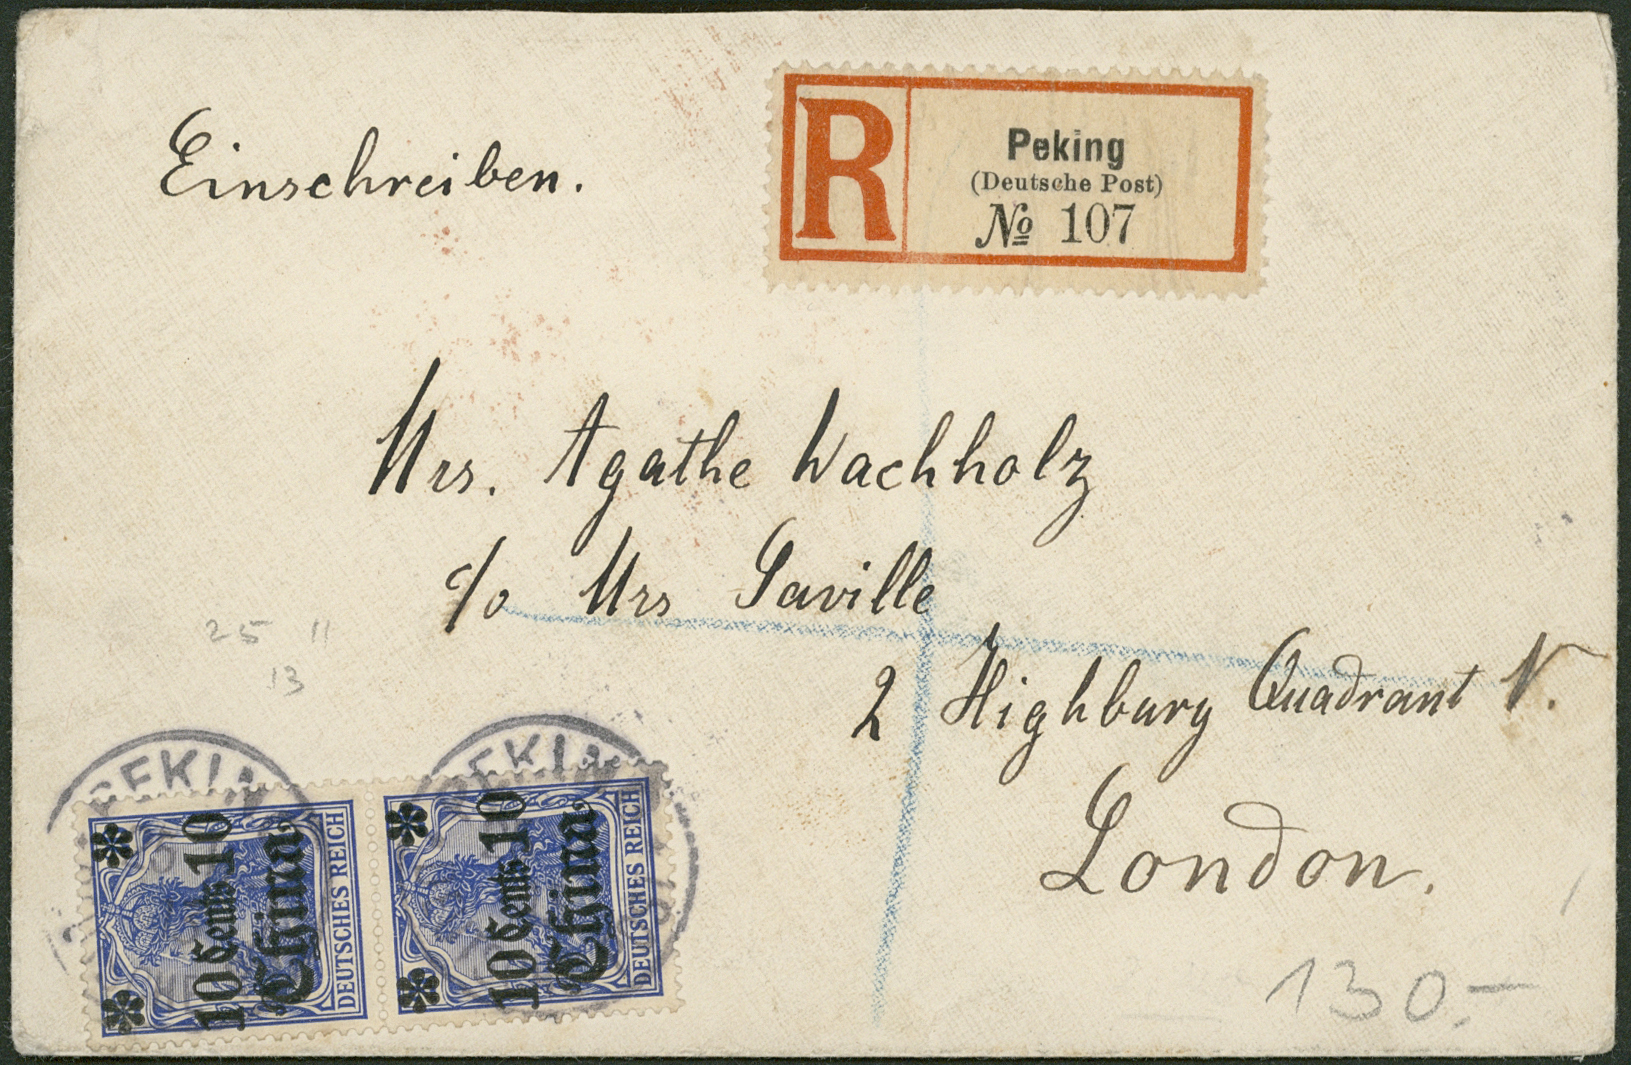 Einschreiben.
R
Peking
(Deutsche Post)
№ 107
Mrs. Agathe Wachholz
c/o Mrs Saville
2 Highbury Quadrant N.
London.
25 11
13
PEKIN
PEKIN
10 Cents 10
China
DEUTSCHES REICH
10 Cents 10
China
DEUTSCHES REICH
130.-